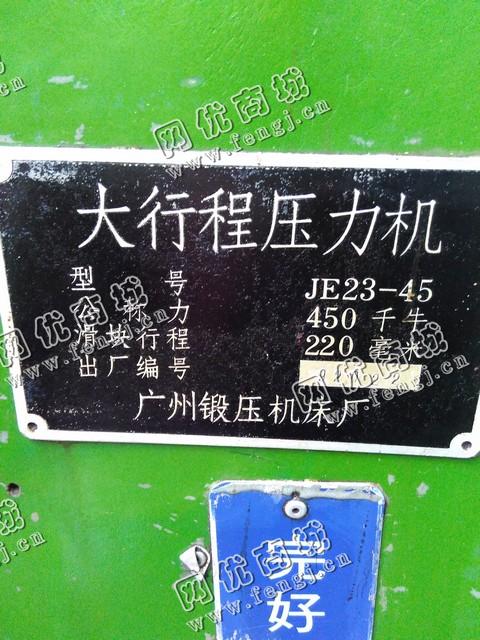 网优商城
www.fengj.cn
大行程压力机
型 号 JE23-45
公 称 力 450 千牛
滑块行程 220 毫米
出厂编号
广州锻压机床厂
网优商城
www.fengj.cn
网优商城
www.fengj.cn
完好
网优商城
www.fengj.cn